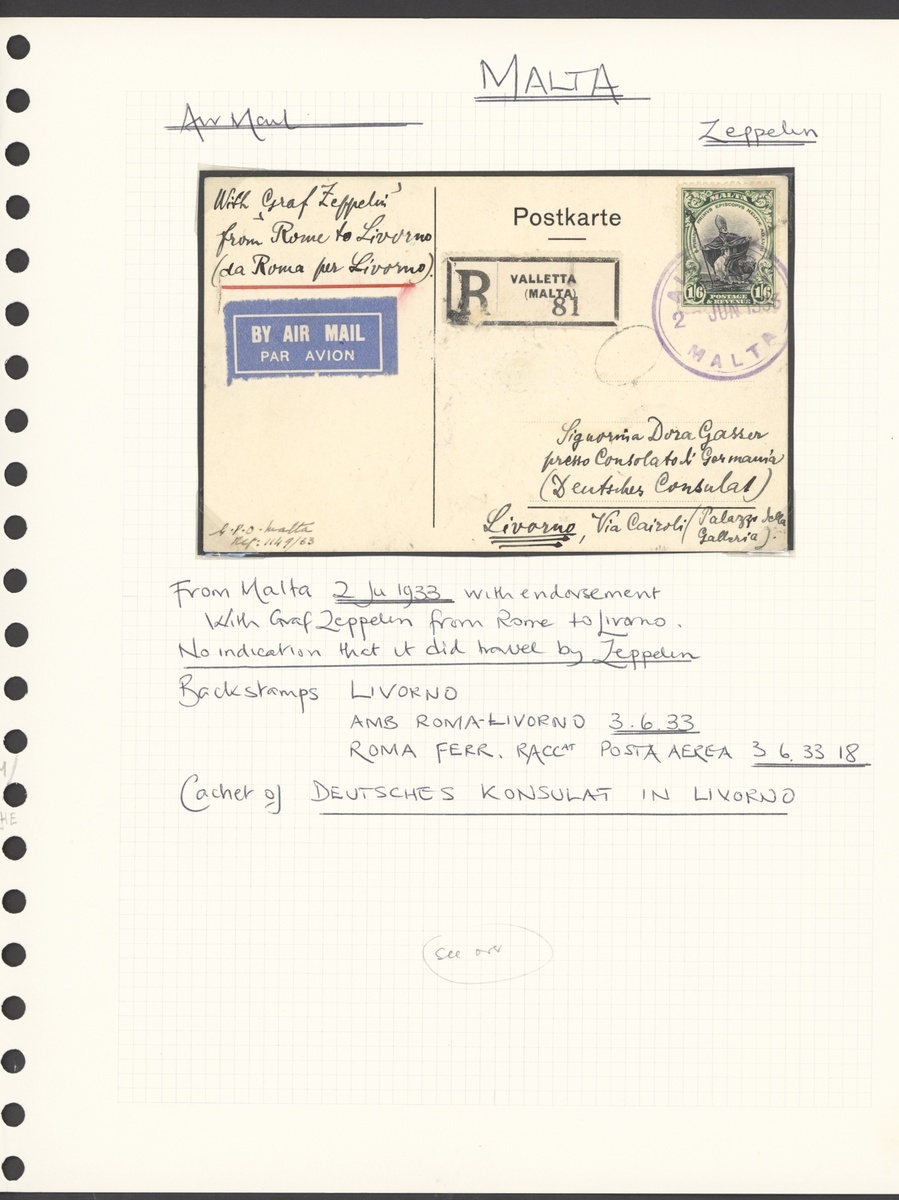 MALTA
Air Mail
Zeppelin
With 'Graf Zeppelin'
from Rome to Livorno
(da Roma per Livorno).
BY AIR MAIL
PAR AVION
Postkarte
R
VALLETTA
(MALTA)
81
MALTA
1/6 POSTAGE 1/6
& REVENUE
2 JUN 1933
MALTA
Signorina Dora Gasser
presso Consolato di Germania
(Deutsches Consulat)
Livorno, Via Cairoli (Palazzo della
Galleria).
G.P.O. Malta
Ref: 1149/33
From Malta 2 Ju 1933 with endorsement
With Graf Zeppelin from Rome to Livorno.
No indication that it did travel by Zeppelin
Backstamps LIVORNO
AMB ROMA-LIVORNO 3.6.33
ROMA FERR. RACCAT POSTA AEREA 3 6.33 18
Cachet of DEUTSCHES KONSULAT IN LIVORNO
see over